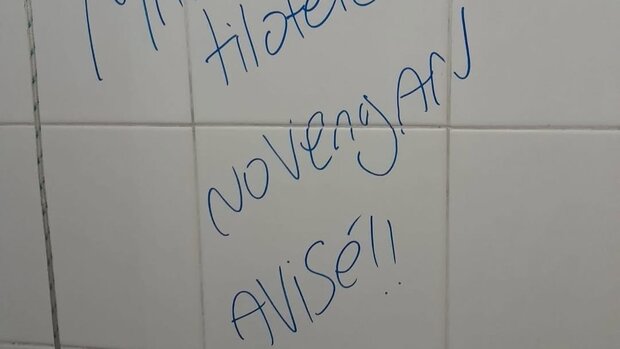 tilote
NO VENgAN
AViSé!!